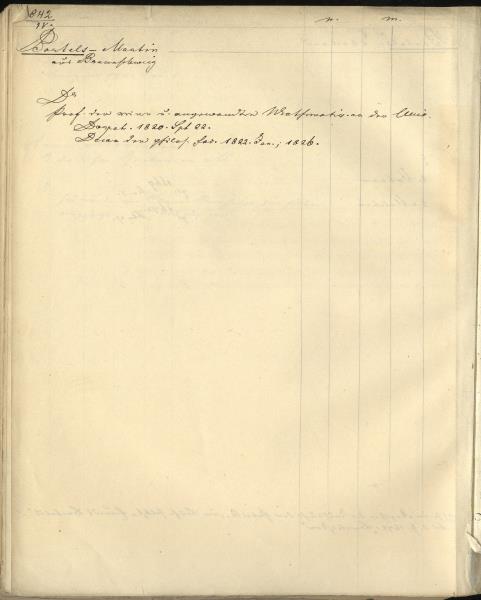 842
n. m.
Bartels - Martin
aus Braunschweig
Dr
Prof. der reinen u. angewandten Mathematik an der Univ.
Dorpat. 1820. Spt 22.
Decan der philos. Fac. 1822. Jan.; 1826.